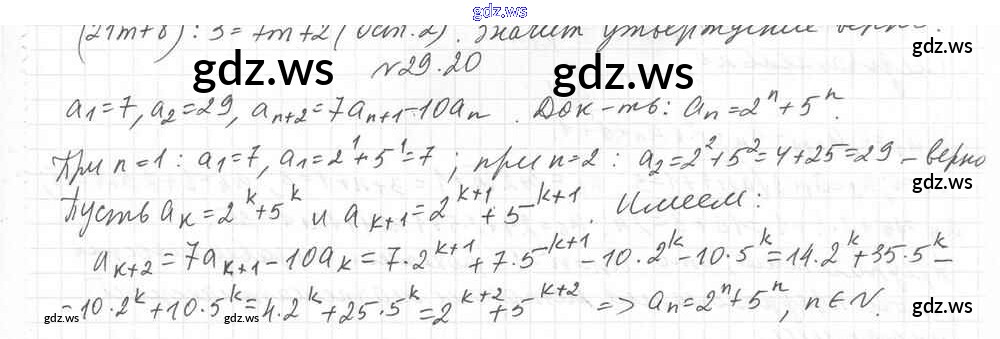 gdz.ws
(21m+8) : 3 = 7m+2 (ост. 2). Значит утверждение верно.
№29.20
gdz.ws gdz.ws
a₁=7, a₂=29, aₙ₊₂=7aₙ₊₁-10aₙ. Док-ть: aₙ=2ⁿ+5ⁿ.
При n=1: a₁=7, a₁=2¹+5¹=7; при n=2: a₂=2²+5²=4+25=29 – верно
Пусть aₖ=2ᵏ+5ᵏ и aₖ₊₁=2ᵏ⁺¹+5⁻ᵏ⁺¹. Имеем:
aₖ₊₂=7aₖ₊₁-10aₖ=7·2ᵏ⁺¹+7·5⁻ᵏ⁺¹-10·2ᵏ-10·5ᵏ=14·2ᵏ+35·5ᵏ–
–10·2ᵏ+10·5ᵏ=4·2ᵏ+25·5ᵏ=2ᵏ⁺²+5ᵏ⁺² => aₙ=2ⁿ+5ⁿ, n∈N.
gdz.ws gdz.ws gdz.ws gdz.ws gdz.ws gdz.ws